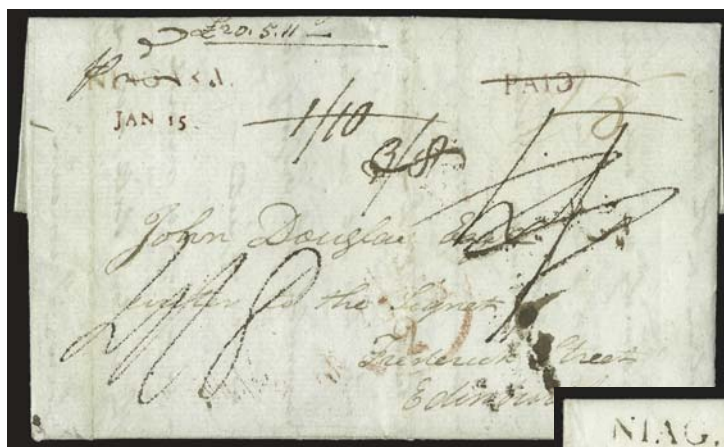 £20.5.11
NIAGARA.
PAID
JAN 15.
1/10
3/8
John Douglas Esqr
writer to the Signet
Frederick Street
Edinburgh
NIAG.